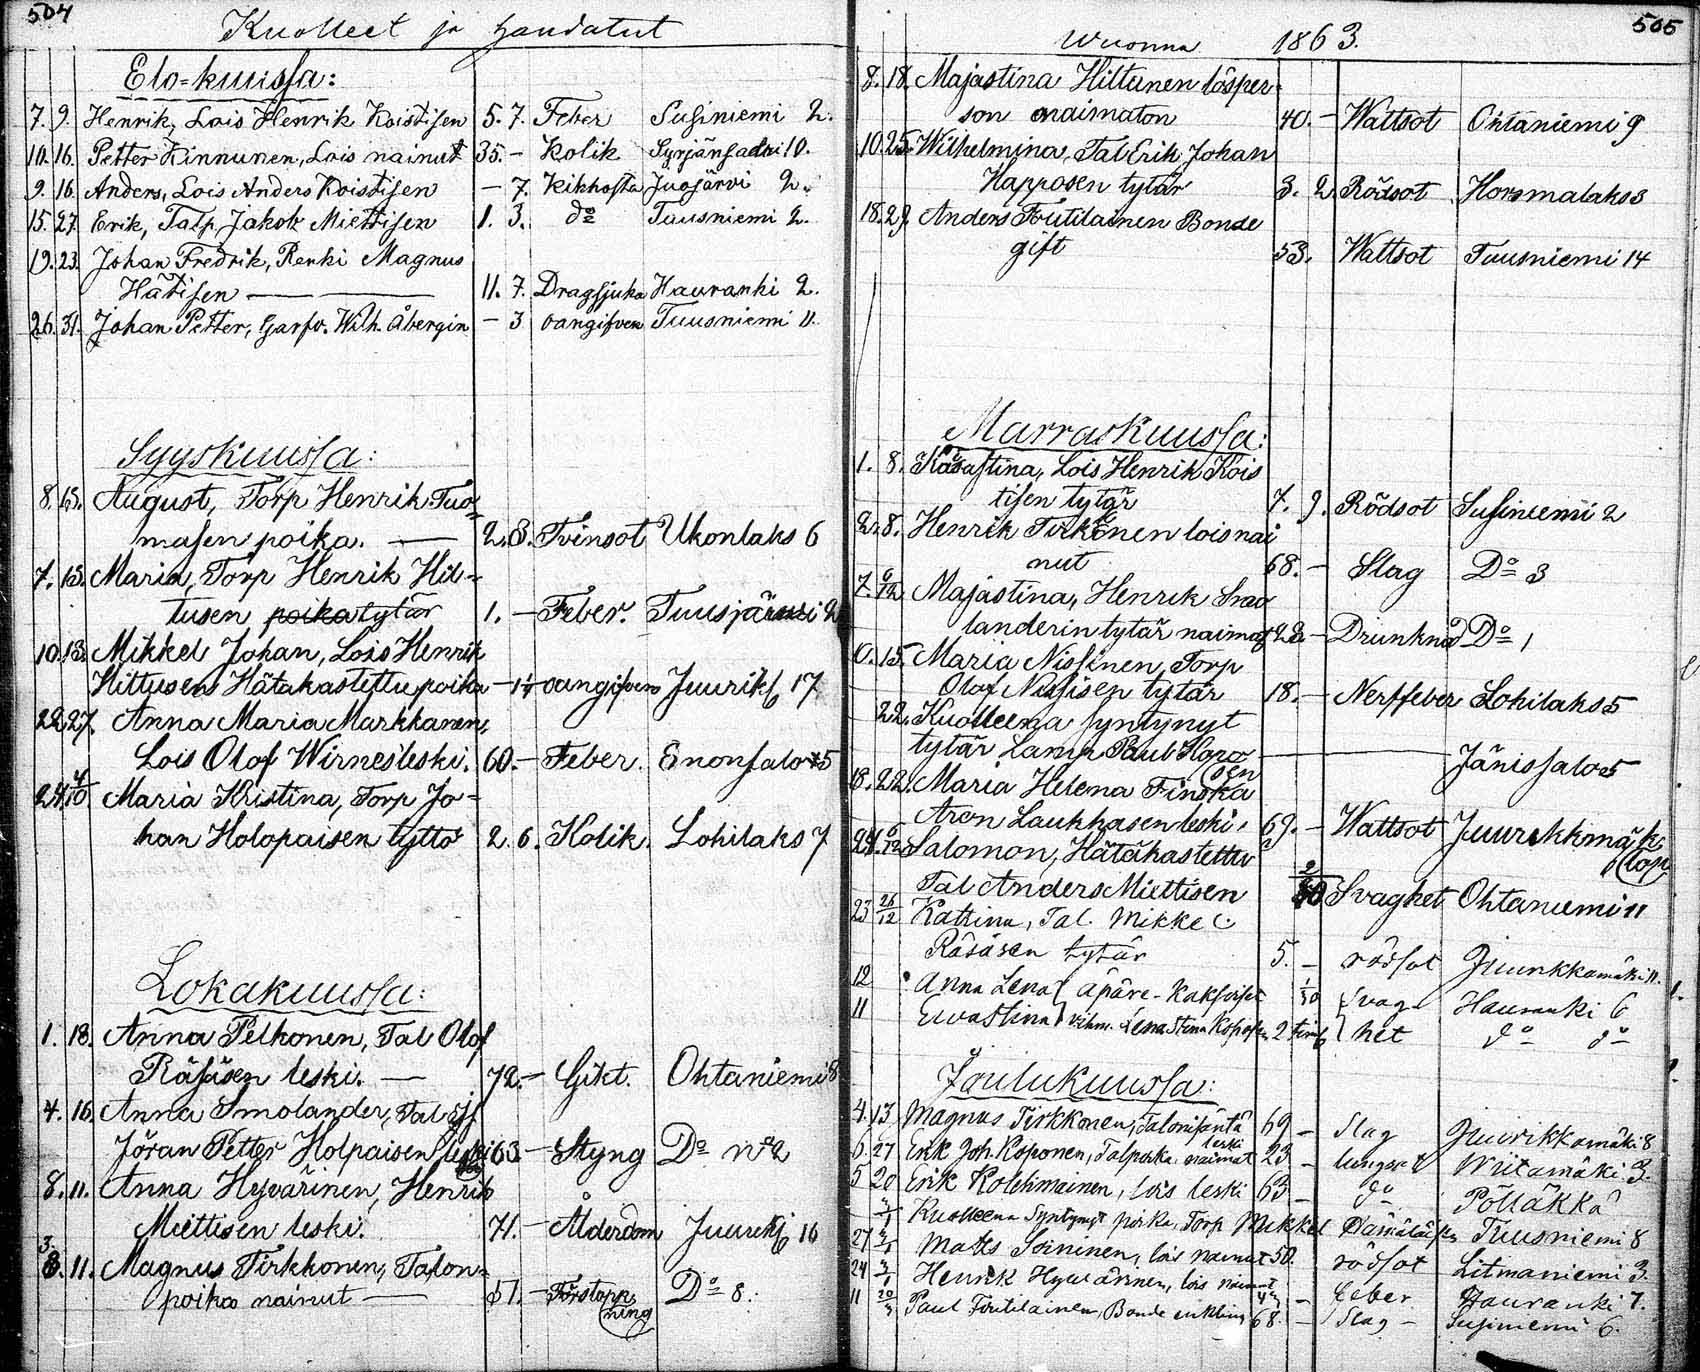 504
Kuolleet ja haudatut
Elo=kuussa:
7. 9. Henrik, Lois Henrik Koistisen 5. 7. Feber Susiniemi 2.
10. 16. Petter Kinnunen, Lois nainut 35. – Kolik Syrjänsalmi 10.
9. 16. Anders, Lois Anders Koistisen – 7. Kikhosta Juojärvi 2.
15. 27. Erik, Talp. Jakob Miettisen 1. 3. do Tuusniemi 2.
19. 23. Johan Fredrik, Renki Magnus
Hätisen 11. 7. Dragsjuka Hauranki 2.
26. 31. Johan Petter, Garfv. Wilh. Åbergin – 3 oangifven Tuusniemi 11.
Syyskuussa:
8. 13. August, Torp Henrik Tuo=
masen poika. 2. 3. Tvinsot Ukonlaks 6
7. 13. Maria, Torp Henrik Hil=
tusen poika tytär 1. – Feber. Tuusjärwi 2
10. 13. Mikkel Johan, Lois Henrik
Hittusen Hätäkastettu poika – 1/4 oangifven Juurik 17
22. 27. Anna Maria Markkanen,
Lois Olof Wirnes leski. 60. – Feber. Enonsalo 5
24. 4/10 Maria Kristina, Torp Jo=
han Holopaisen tyttö 2. 6. Kolik. Lohilaks 7
Lokakuussa:
1. 18. Anna Pelkonen, Tal Olof
Räsäsen leski. 72. – Gikt. Ohtaniemi 8
4. 16. Anna Smolander, Tal
Jöran Petter Holpaisen leski 63 – Styng Do No 2
8. 11. Anna Hyvärinen, Henrik
Miettisen leski. 71. – Ålderdom Juurik 16
3.
8. 11. Magnus Tirkkonen, Talon=
poika nainut 51. – Förstopp
ning Do 8.
505
Wuonna 1863.
8. 18. Majastina Hiltunen lösper=
son naimaton 40. – Wattsot Ohtaniemi 9
10. 25. Wilhelmina, Tal Erik Johan
Happosen tytär 3. 2. Rödsot Horsmalaks 3
18. 29. Anders Toutilainen Bonde
gift 53. Wattsot Tuusniemi 14
Marraskuussa:
1. 8. Kaisastina, Lois Henrik Kois
tisen tytär 7. 9. Rödsot Susiniemi 2
2. 8. Henrik Tirkonen lois nai
nut 68. – Slag Do 3
7. 6/12 Majastina, Henrik Smo
landerin tytär naimat 23 – Drunknad Do 1
0. 15. Maria Nissinen, Torp
Olof Nissisen tytär 18. – Nerffeber Lohilaks 5
22. Kuolleena syntynyt
tytär Lamp Paul Hapo
sen Jänissalo 5
18. 22. Maria Helena Finska
Aron Laukkasen leski, 69. – Wattsot Juurikkamäk
24. 6/12 Salomon, Hätäkastettu
Tal Anders Miettisen 2/30 Svaghet Ohtaniemi 11
23 26/12 Katrina, Tal. Mikkel
Räsäsen tytär 5. – rödsot Juurikkamäki 11.
12 Anna Lena äpäre-kaksoiset 1/30 Svag Hauranki 6
11 Ewastina Wihm. Lena Stina Koposen 2 tim het do do
Joulukuussa:
4. 13 Magnus Tirkkonen, Talonisäntä 69 – Slag Juurikkamäki 8
leski
6. 27 Erik Joh. Koponen, Talpoika naimat 23 – lungsot Wiitamäki 3.
5 20 Erik Kolehmainen, lois leski 63 – do Pölläkkä
Kuolleena Syntynyt poika, Torp Mikkel Hämäläisen Tuusniemi 8
27 Mats Soininen, lois nainut 50. rödsot Litmaniemi 3.
24 Henrik Hyvärinen, lois nainut – feber Hauranki 7.
11 20/3 Paul Toutilainen, Bonde enkling 68. – Slag – Susiniemi 6.